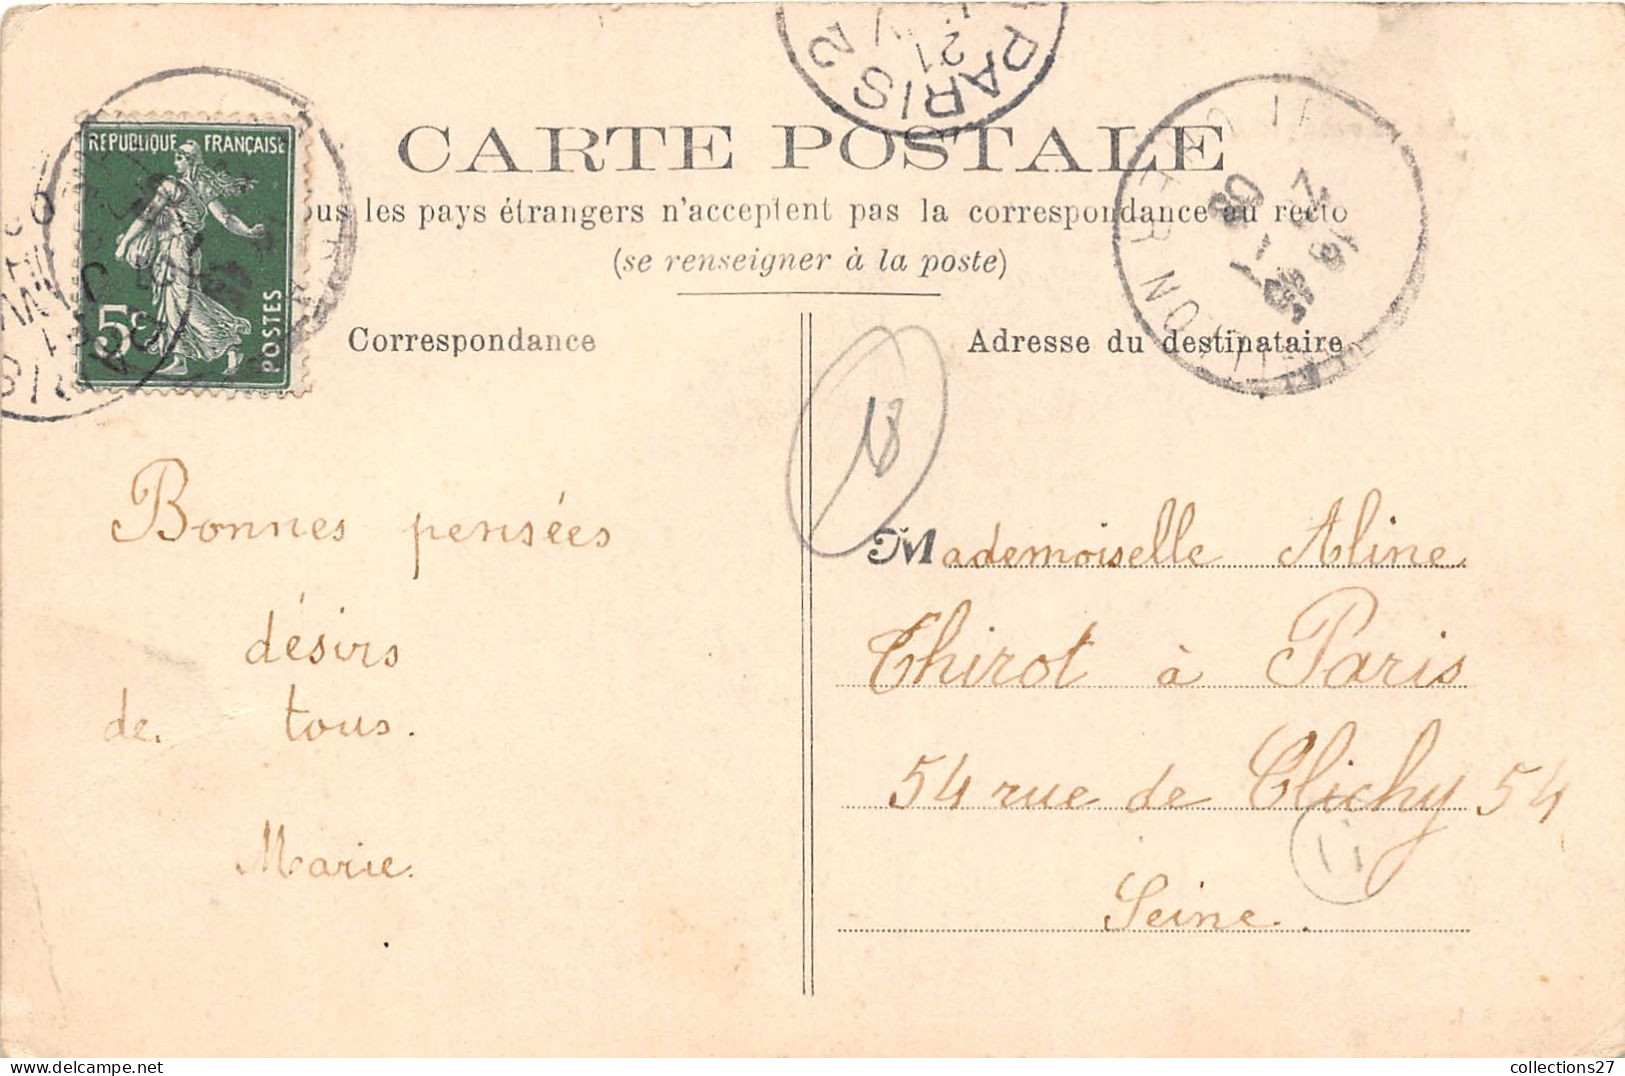 PARIS 2
21
RÉPUBLIQUE FRANÇAISE
5c
POSTES
CARTE POSTALE
les pays étrangers n'acceptent pas la correspondance au recto
(se renseigner à la poste)
Correspondance
Adresse du destinataire
18
Bonnes pensées
désirs
de tous.
Marie.
Mademoiselle Aline
Thirot à Paris
54 rue de Clichy 54
Seine.
collections27